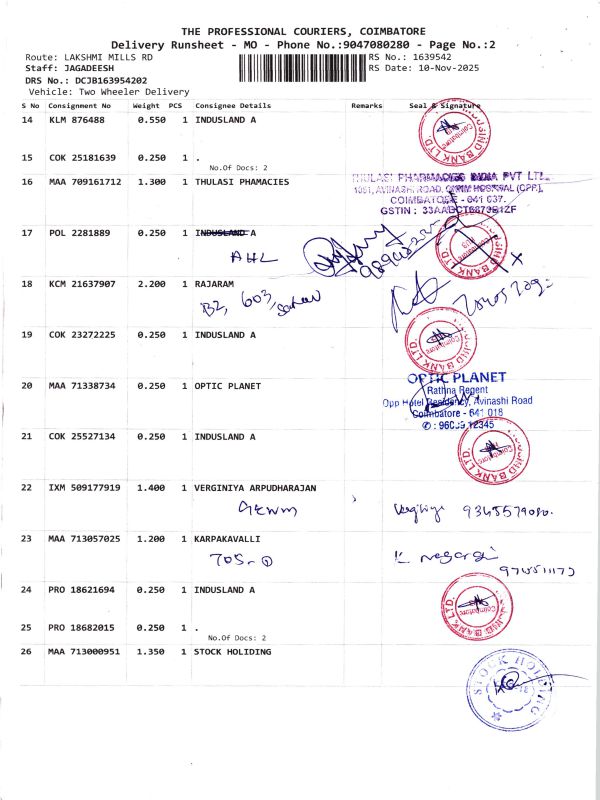 THE PROFESSIONAL COURIERS, COIMBATORE
Delivery Runsheet - MO - Phone No.:9047080280 - Page No.:2
Route: LAKSHMI MILLS RD RS No.: 1639542
Staff: JAGADEESH RS Date: 10-Nov-2025
DRS No.: DCJB163954202
Vehicle: Two Wheeler Delivery
S No Consignment No Weight PCS Consignee Details Remarks Seal & Signature
14 KLM 876488 0.550 1 INDUSLAND A
15 COK 25181639 0.250 1 .
No.Of Docs: 2
16 MAA 709161712 1.300 1 THULASI PHAMACIES
THULASI PHARMACIES INDIA PVT LTD.
COIMBATORE - 641 037.
17 POL 2281889 0.250 1 INDUSLAND A
AHL
18 KCM 21637907 2.200 1 RAJARAM
B2, 603,
19 COK 23272225 0.250 1 INDUSLAND A
20 MAA 71338734 0.250 1 OPTIC PLANET
OPTIC PLANET
Rathna Regent
Opp Hotel Residency, Avinashi Road
Coimbatore - 641 018
21 COK 25527134 0.250 1 INDUSLAND A
22 IXM 509177919 1.400 1 VERGINIYA ARPUDHARAJAN
23 MAA 713057025 1.200 1 KARPAKAVALLI
705-
24 PRO 18621694 0.250 1 INDUSLAND A
25 PRO 18682015 0.250 1 .
No.Of Docs: 2
26 MAA 713000951 1.350 1 STOCK HOLIDING
STOCK HOLDING